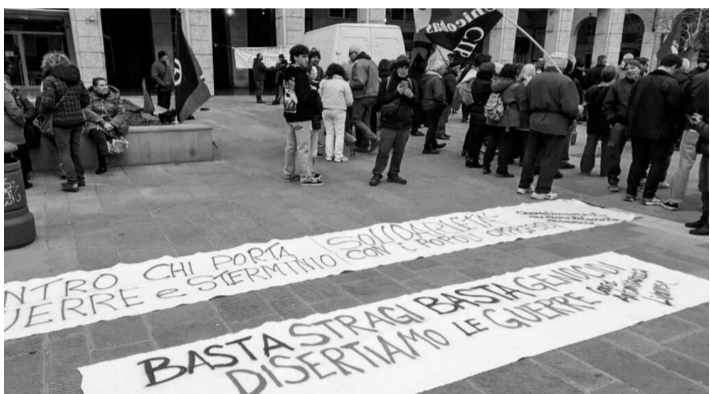 NTRO CHI PORTA
UERRE e STERMINIO
SOLIDARIETA'
CON I POPOLI OPPRESSI
BASTA STRAGI BASTA GENOCIDI
DISERTIAMO LE GUERRE